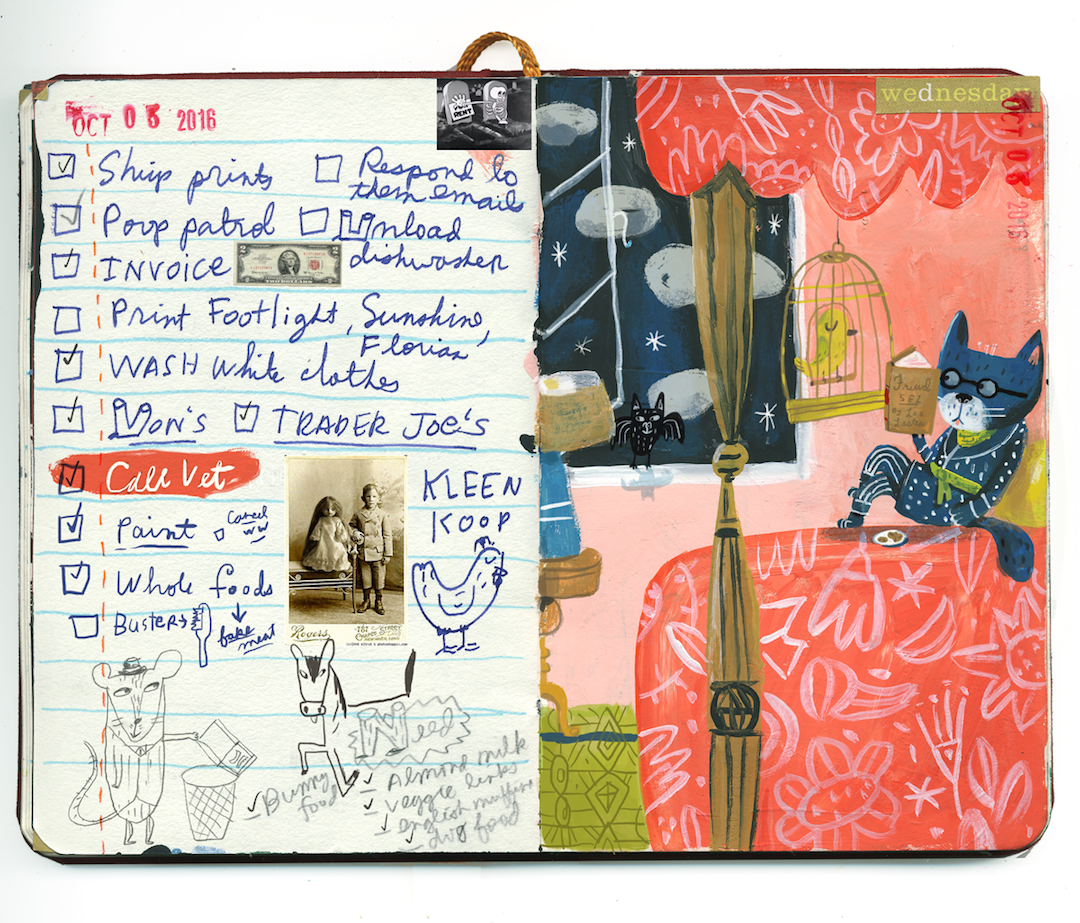 OCT 2016
Ship prints
Respond to
them emails
Poop patrol
Unload
dishwasher
INVOICE
Print Footlight, Sunshine,
Florian
WASH White clothes
Von's
TRADER JOE'S
Call Vet
Paint
Cancel
WW
Whole foods
Busters
fake
meat
KLEEN
KOOP
Rogers
Need
Bunny
food
Almond milk
veggie links
english muffins
food
RENT
TWO DOLLARS
wednesday
OCT 2016
Freud